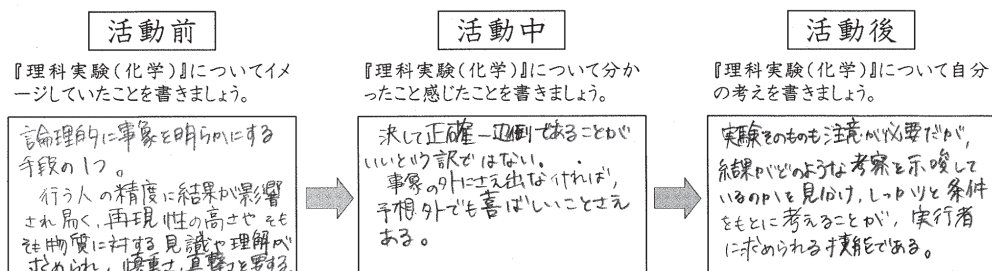 活動前
『理科実験(化学)』についてイメ
ージしていたことを書きましょう。
論理的に事象を明らかにする
手段の1つ。
行う人の精度に結果が影響
され易く、再現性の高さやそも
そも物質に対する見識や理解が
求められ、慎重さ、真摯さを要する
活動中
『理科実験(化学)』について分か
ったこと感じたことを書きましょう。
決して正確一辺倒であることが
いいという訳ではない。
事象の外にさえ出なければ、
予想外でも喜ばしいことさえ
ある。
活動後
『理科実験(化学)』について自分
の考えを書きましょう。
実験そのものも注意が必要だが、
結果がどのような考察を示唆して
いるのかを見分け、しっかりと条件
をもとに考えることが、実行者
に求められる技能である。